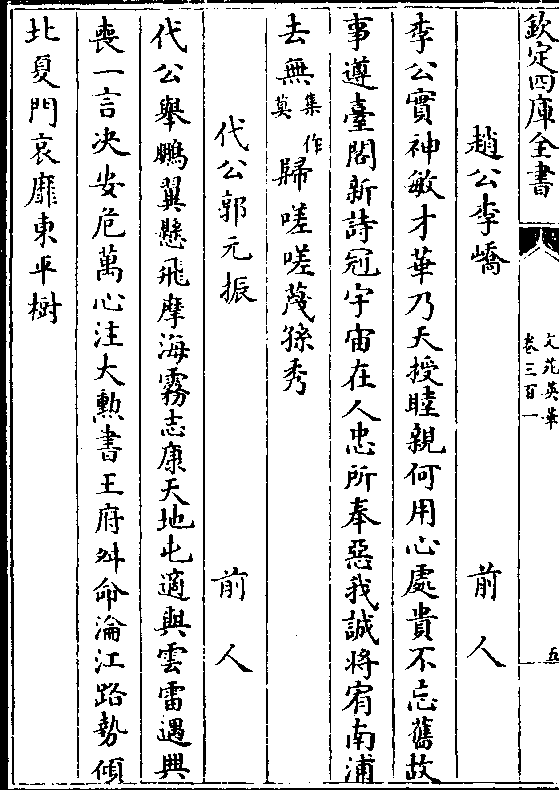 欽定四庫全書
文苑英華
卷三百一
五
趙公李嶠 前人
李公實神敏才華乃天授睦親何用心處貴不忘舊故
事遵臺閣新詩冠宇宙在人忠所奉惡我誠將宥南浦
去無集作莫歸嗟嗟蔑孫秀
代公郭元振 前人
代公舉鵬翼懸飛摩海霧志康天地屯適與雲雷遇興
喪一言決安危萬心注大勲書王府舛命淪江路勢傾
北夏門哀靡東平樹